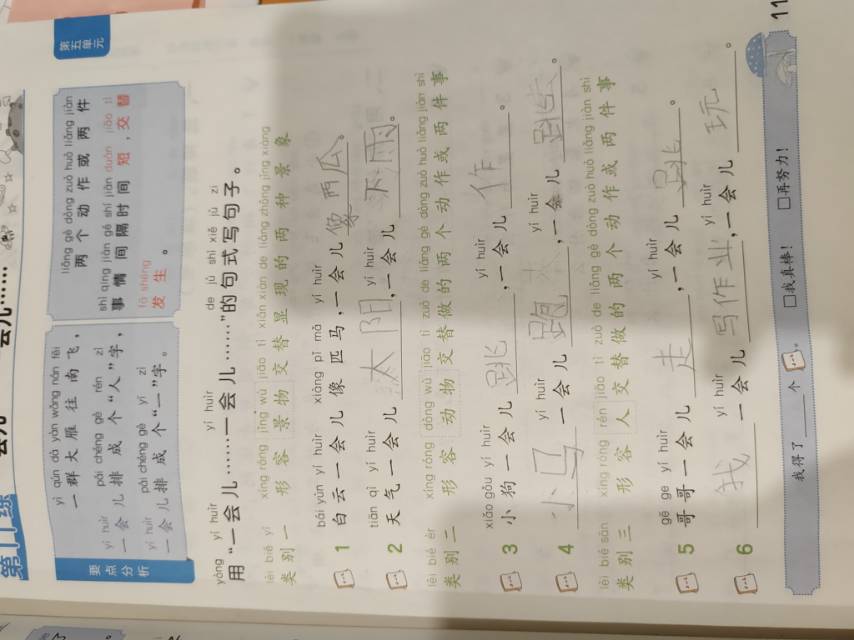 第五单元
yì qún dà yàn wǎng nán fēi
一群大雁往南飞，
yí huìr pái chéng gè rén zì
一会儿排成个“人”字，
yí huìr pái chéng gè yī zì
一会儿排成个“一”字。
要点分析
liǎng gè dòng zuò huò liǎng jiàn
两个动作或两件
shì qing jiàn gé shí jiān duǎn jiāo tì
事情间隔时间短，交替
fā shēng
发生。
yòng yí huìr yí huìr de jù shì xiě jù zi
用“一会儿……一会儿……”的句式写句子。
lèi bié yī xíng róng jǐng wù jiāo tì xiǎn xiàn de liǎng zhǒng jǐng xiàng
类别一 形容景物交替显现的两种景象
bái yún yí huìr xiàng pǐ mǎ yí huìr
1 白云一会儿像匹马，一会儿像西瓜。
tiān qì yí huìr yí huìr
2 天气一会儿太阳，一会儿下雨。
lèi bié èr xíng róng dòng wù jiāo tì zuò de liǎng gè dòng zuò huò liǎng jiàn shì
类别二 形容动物交替做的两个动作或两件事
xiǎo gǒu yí huìr yí huìr
3 小狗一会儿跳，一会儿作。
yí huìr yí huìr
4 小马一会儿跑，一会儿跳。
lèi bié sān xíng róng rén jiāo tì zuò de liǎng gè dòng zuò huò liǎng jiàn shì
类别三 形容人交替做的两个动作或两件事
gē ge yí huìr yí huìr
5 哥哥一会儿走，一会儿跳。
yí huìr yí huìr
6 我一会儿写作业，一会儿玩。
我得了____个。 □我真棒！ □再努力！
11